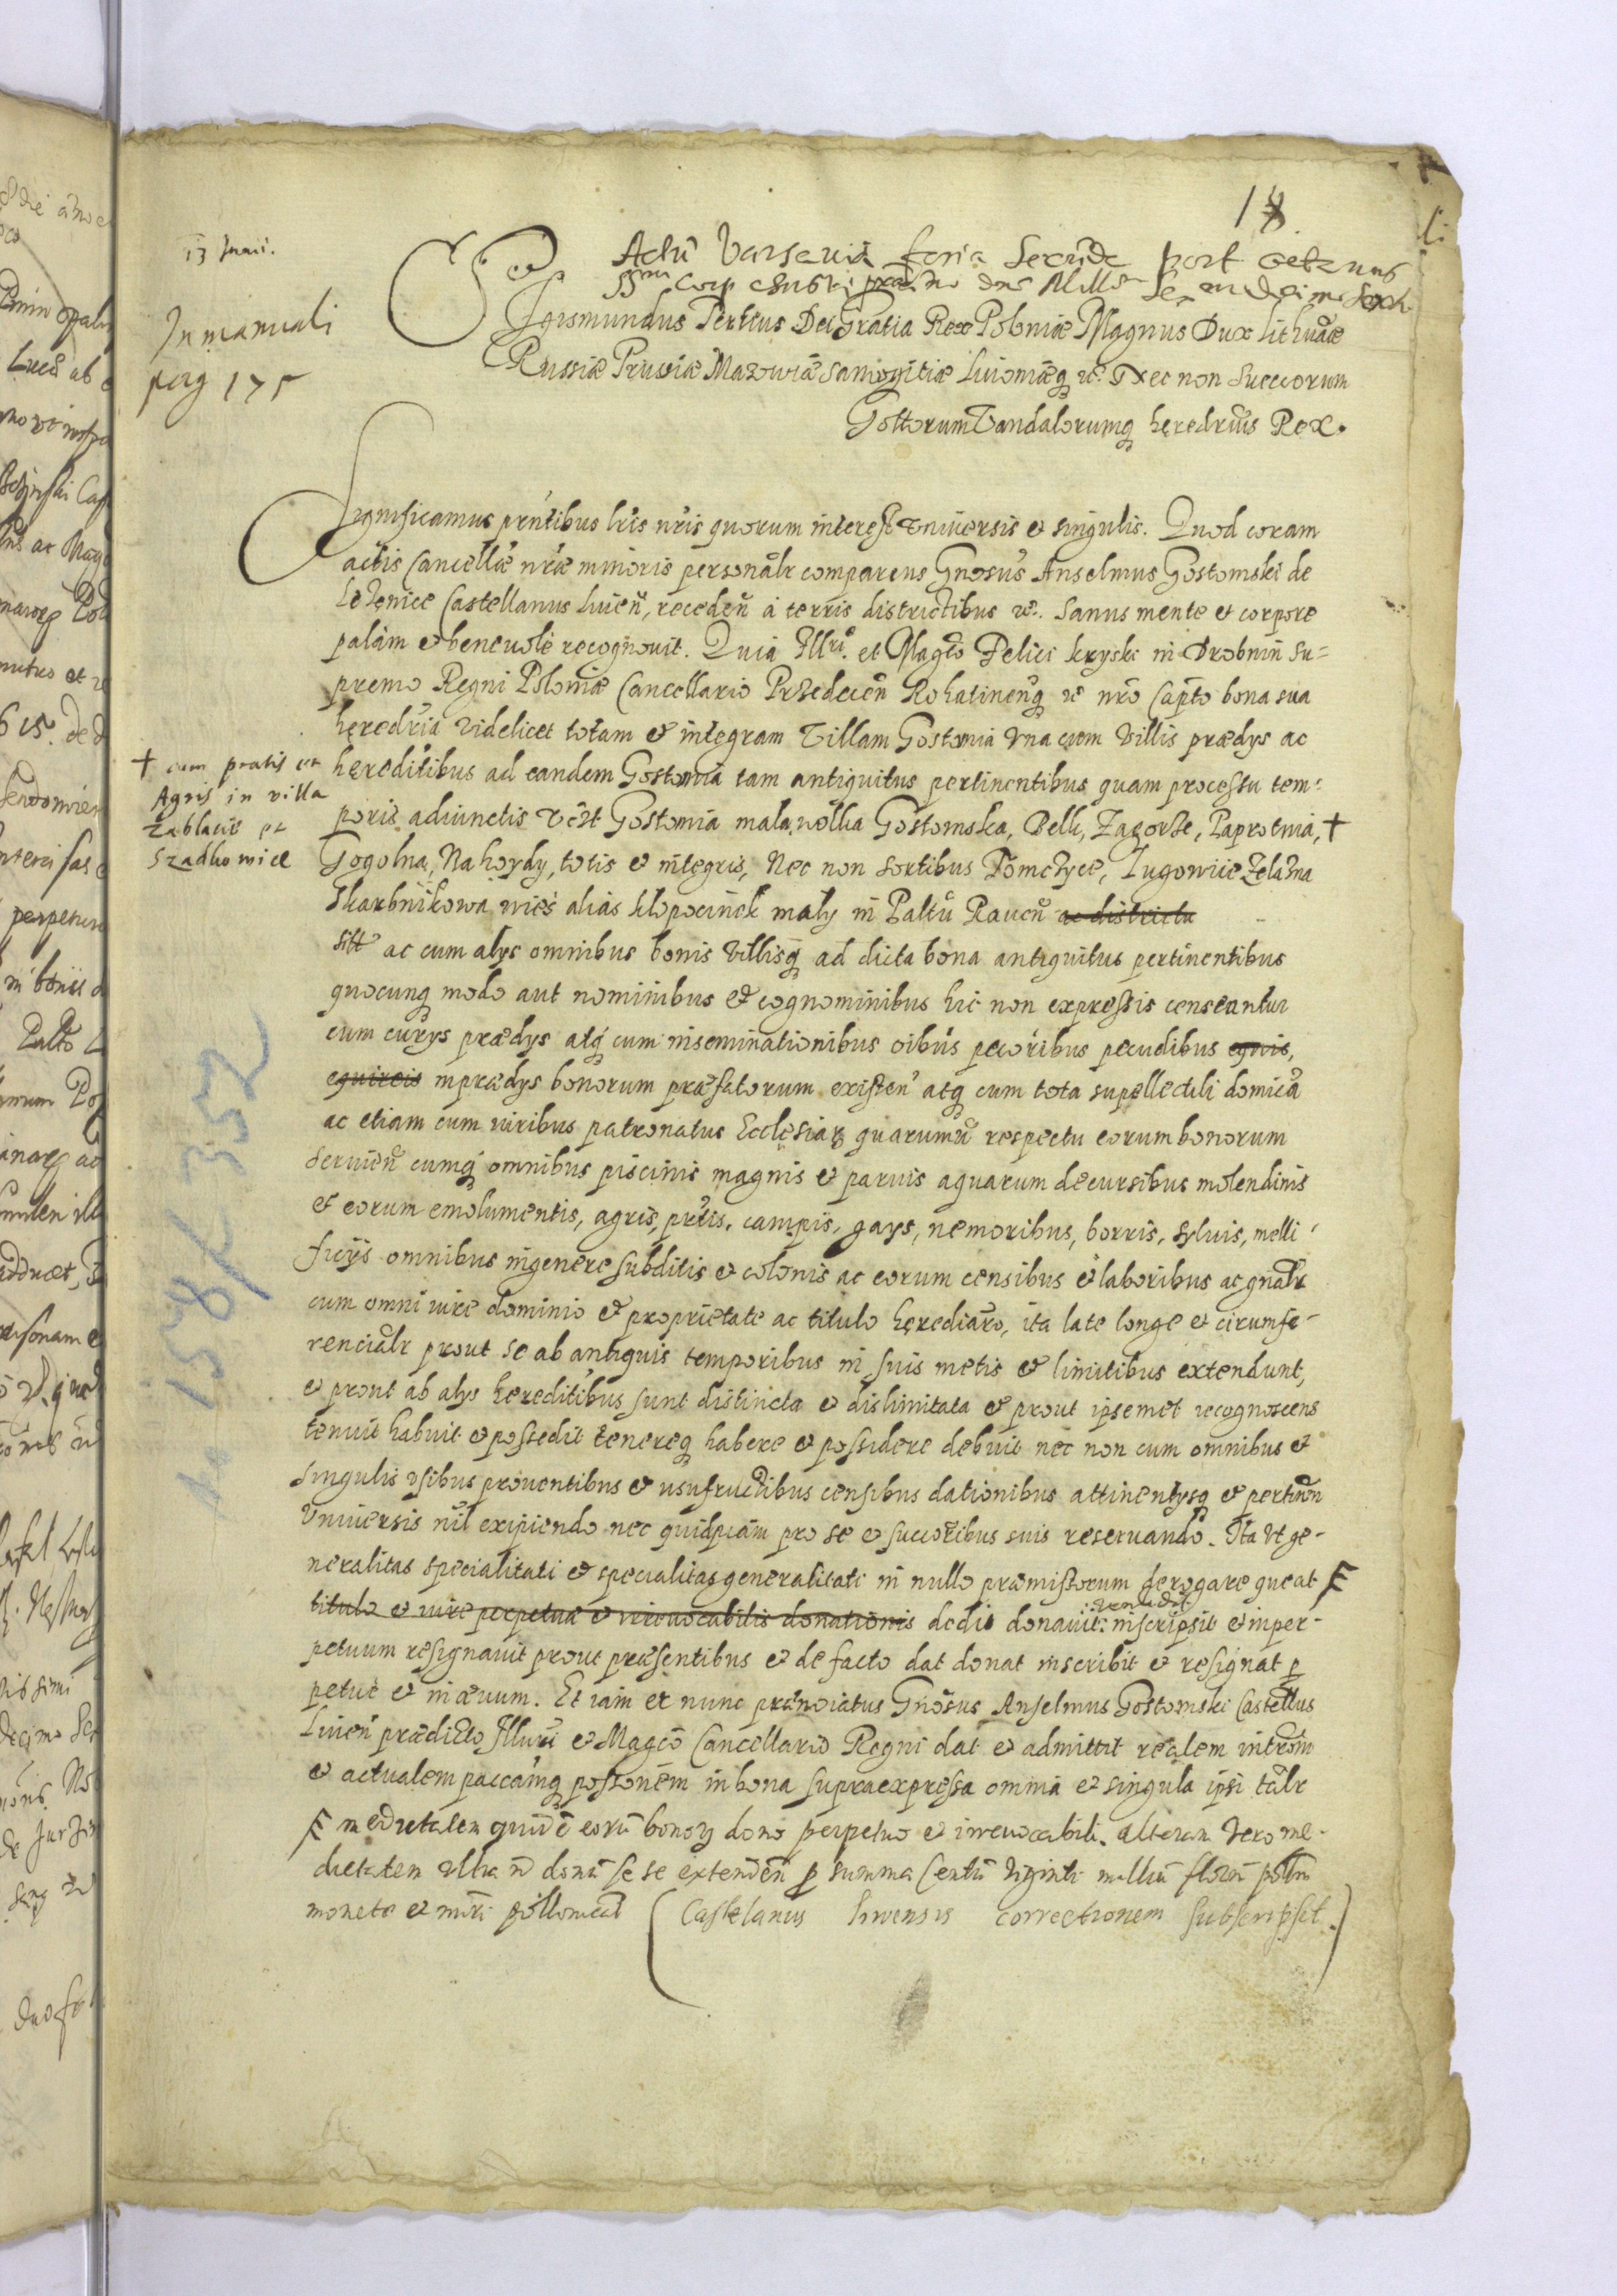 18
13 Junii.
Actū Varsaviæ feria Secūda post octavas
SSmi Corp Christi proximo Ano Mill Sexcen Decimo Sexto
In manuali
pag 175
Sigismundus Tertius Dei Gratia Rex Poloniæ Magnus Dux Lithuāæ
Russiæ Prussiæ Mazowiæ Samogitiæ Liuoniæq̨ etc. Nec non Suecorum
Gottorum Vandalorumq̨ hęredrius Rex.
Significamus pr̃ntibus lr̃is nr̃is quorum interest Vniuersis et singulis. Quod coram
actis Cancellæ nr̃æ minoris personalr comparens Gnosus Anselmus Gostomski de
Leżenice Castellanus Liueñ, recedeñ à terris districtibus etc. Sanus mente et corpore
palàm et beneuolè recognouit. Quia Illri. et Magco Felici Kryski in Drobnin Su=
premo Regni Poloniæ Cancellario Przedecen Rohatineñq̨ etc nr̃o Capto bona sua
hęredria videlicet totam et integram Villam Gostomia vna cum villis prædys ac
hęreditibus ad eandem Gostomia tam antiquitus pertinentibus quam processu tem=
poris adiunctis vcȥt Gostomia mala, wolka Gostomska, Belk, Zagorze, Paprotnia, ✝
✝ cum pratis et
Agris in villa
Zablacie et
Szadkowice
Gogolna, Na hoydy, totis et integris, Nec non sortibus Tomczyce, Lugowice Zelazna
Skarbnikowa wies alias Klopocinek maly in Paltū Raueñ ac districtu
sitt ac cum alys omnibus bonis villisq̨ ad dicta bona antiquitus pertinentibus
quocunq̨ modo aut nominibus et cognominibus hic non expressis censeantur
cum curys prædys atq̨ cum inseminationibus oibus pecoribus pecudibus equis,
equireis in prædys bonorum præfatorum existeñ atq̨ cum tota supellectili domica
ac etiam cum iuribus patronatus Ecclesiaꝝ quarumū respectu eorum bonorum
seruieñ cumq̨ omnibus piscinis magnis et paruis aquarum decursibus molendinis
et eorum emolumentis, agris, prtis, campis, gays, nemoribus, borris, syluis, melli
ficijs omnibus in genere subditis et colonis ac eorum censibus et laboribus ac gnalr
cum omni iure dominio et proprietate ac titulo hęrediaro, ita late longe et cirumfe-
rencialr prout se ab antiquis temporibus in suis metis et limitibus extendunt,
et prout ab alys hęreditibus sunt distincta et dislimitata et prout ipsemet recognoscens
tenuit habuit et possedit tenereq̨ habere et possidere debuit nec non cum omnibus et
singulis vsibus prouentibus et usufructibus censibus dationibus attinentysq̨ et pertineñ
Vniuersis nil excipiendo nec quidpiam pro se et succoribus suis reseruando. Ita vt ge-
neralitas specialitati et specialitas generalitati in nullo præmissorum derogare queat F
titulo et iure perpetuæ et irreuocabilis donationis dedit donauit: vendidit inscripsit et in per-
petuum resignauit prout præsentibus et de facto dat donat inscribit et resignat ꝑ
petue et in æuum. Et iam ex nunc prænoiatus Gnosus Anselmus Gostomski Castellus
Liueñ prædicto Illuri et Magco Cancellario Regni dat et admittit realem intrõm
et actualem paccamq̨ possonem in bona supraexpressa omnia et singula ipsi talr
F medietatem quidē eorū bonoꝝ dono perpetuo et irreuocabili. alteram vero me-
dietatem vltra donū se se extendeñ ꝑ summa Centū viginti milliū floreñ polln
monete et nūri pollonical (Castelanus Liwensis correctionem subscripsit.)
No 158 / 352